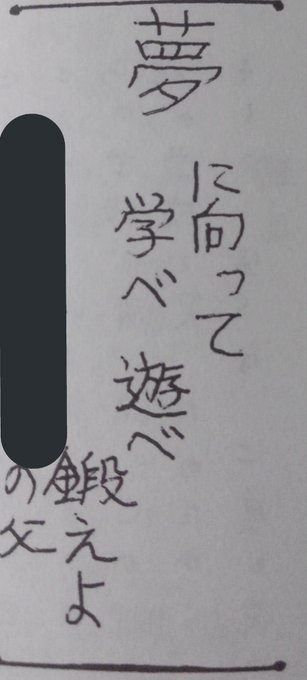 夢
に向って
学べ 遊べ
鍛えよ
の父